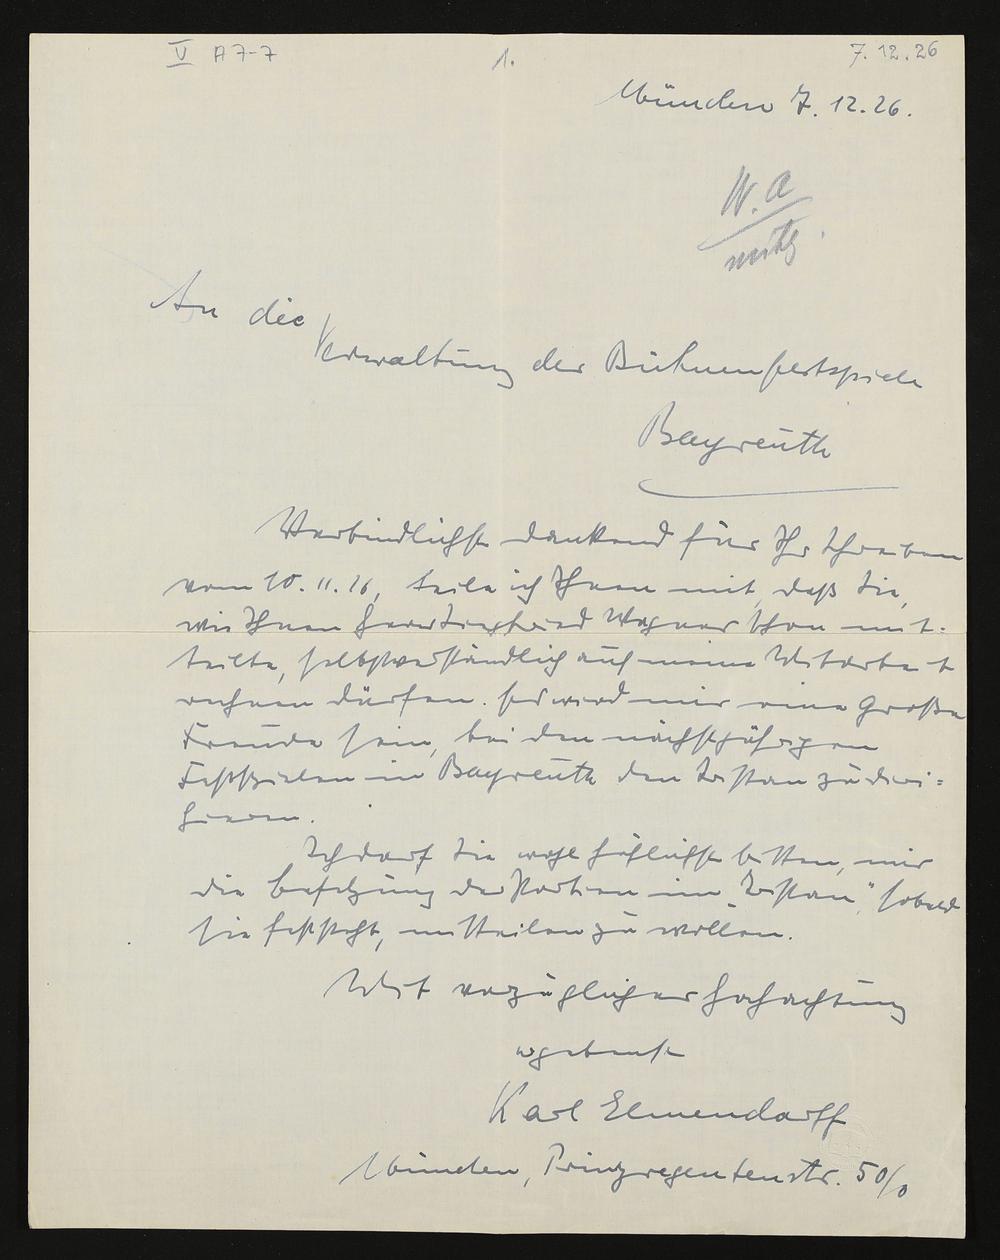 V A 7-7
1.
7.12.26
München 7.12.26.
W. A
An die
Verwaltung der Bühnenfestspiele
Bayreuth
Verbindlichst dankend für Ihr Schreiben
vom 10.11.26, teile ich Ihnen mit, daß Sie,
wie Ihnen Herr Siegfried Wagner schon mit-
teilte, selbstverständlich auf meine Mitarbeit
rechnen dürfen. Es wird mir eine große
Freude sein, bei den nächstjährigen
Festspielen in Bayreuth den Tristan zu diri=
gieren.
Ich darf Sie wohl höflichst bitten, mir
die Besetzung der Partien im "Tristan", sobald
sie feststeht, mitteilen zu wollen.
Mit vorzüglicher Hochachtung
ergebenst
Karl Elmendorff
München, Prinzregentenstr. 50/0